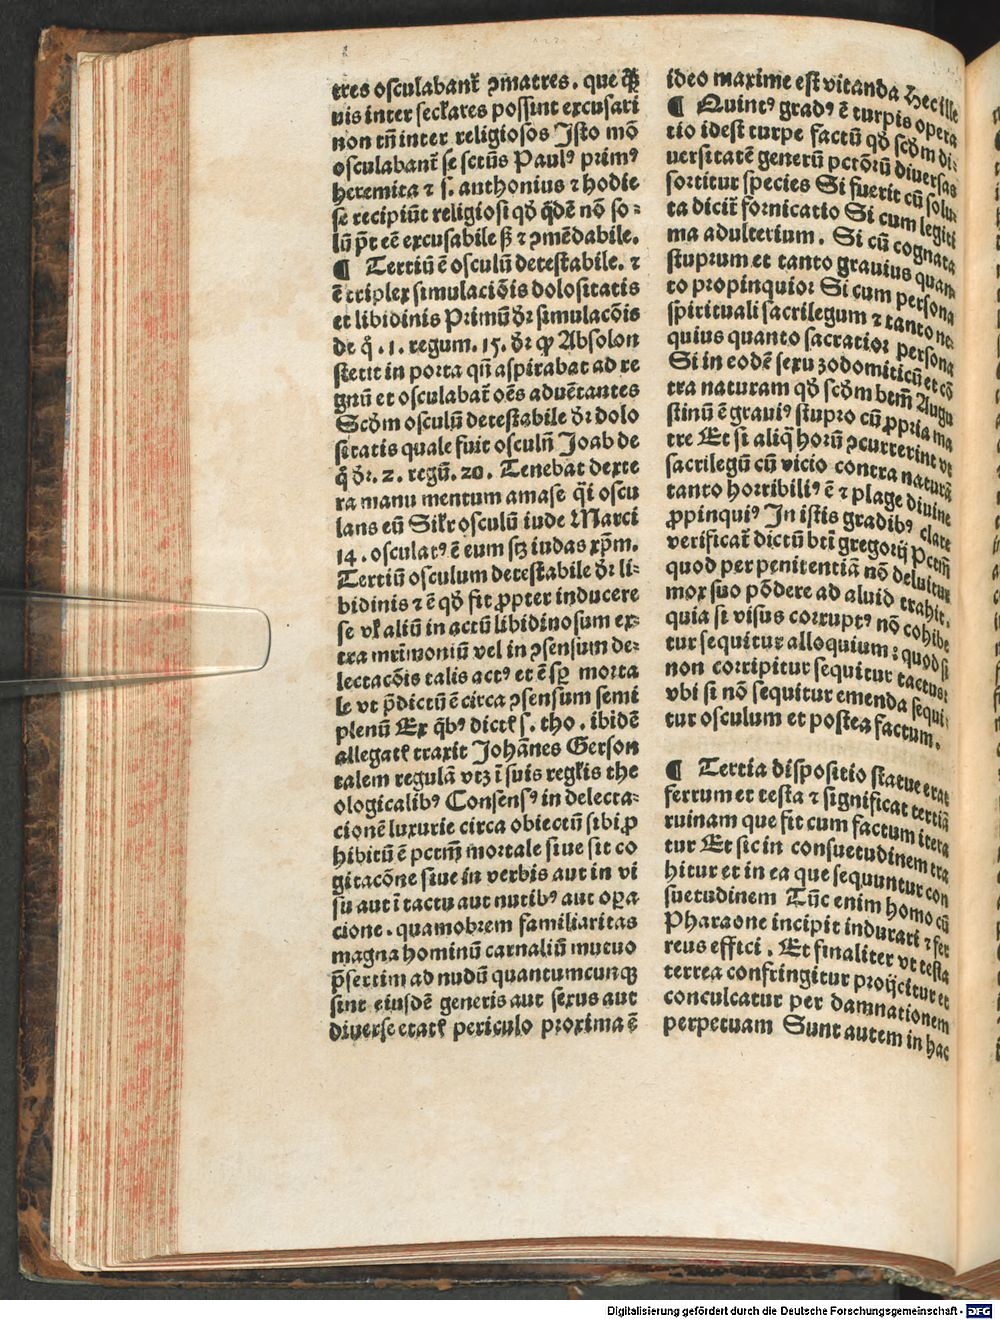 tres osculabant᷑ ꝯmatres. que q̄ꝫ
uis inter secl̕ares possint excusari
non tn̄ inter religiosos Isto mō
osculabant᷑ se sctūs Paulꝰ primꝰ
heremita ⁊ s. anthonius ⁊ hodie
se recipiūt religiosi qđ q̄dē nō so⸗
lū p̄t eē excusabile sꝫ ⁊ ꝯmēdabile.
¶ Tertiū ē osculū detestabile. ⁊
ē triplex simulaciōis dolositatis
et libidinis Primū dr̄ simulacōis
de q̊ .1. regum. 15. dr̄ ꝙ Absolon
stetit in porta qn̄ aspirabat ad re
gnū et osculabat᷑ oēs aduētantes
Scd̕m osculū detestabile dr̄ dolo
sitatis quale fuit osculū Joab de
q̊ dr̄. 2. regū. 20. Tenebat dexte
ra manu mentum amase q̄i oscu
lans eū Sil̕r osculū iude Marci
14. osculatꝰ ē eum scꝫ iudas xp̄m.
Tertiū osculum detestabile dr̄ li⸗
bidinis ⁊ ē qđ fit ꝓpter inducere
se vl̕ aliū in actū libidinosum ex⸗
tra mr̄imoniū vel in ꝯsensum de⸗
lectacōis talis actꝰ et ē sꝑ morta
le vt p̄dictū ē circa ꝯsensum semi
plenū Ex q̄bꝰ dictꝭ s. tho. ibidē
allegatꝭ traxit Johānes Gerson
talem regulā vtꝫ ī suis regl̕is the
ologicalibꝰ Consensꝰ in delecta⸗
cionē luxurie circa obiectū sibi ꝓ
hibitū ē pctm̄ mortale siue sit co
gitacōne siue in verbis aut in vi
su aut ī tactu aut nutibꝰ aut oꝑa
cione. quamobrem familiaritas
magna hominū carnaliū mutuo
p̄sertim ad nudū quantumcunqꝫ
sint eiusdē generis aut sexus aut
diuerse etatꝭ periculo proxima ē
ideo maxime est vitanda Hec ille
¶ Quintꝰ gradꝰ ē turpis opera
tio idest turpe factū qđ scd̕m di⸗
uersitatē generū pctōrū diuersas
sortitur species Si fuerit cū solu⸗
ta dicit᷑ fornicatio Si cum legiti
ma adulterium. Si cū cognata
stuprum et tanto grauius quan
to propinquior Si cum persona
spirituali sacrilegum ⁊ tanto ne⸗
quius quanto sacratior persona
Si in eodē sexu zodomiticū et cō
tra naturam qđ scd̕m btm̄ Augu
stinū ē grauiꝰ stupro cū ꝓpria ma
tre Et si aliq̄ horū ꝯcurrerint vt
sacrilegū cū vicio contra naturā
tanto horribiliꝰ ē ⁊ plage diuine
ꝓpinquiꝰ In istis gradibꝰ clare
verificat᷑ dictū btī gregorij Pctm̄
quod per penitentiā nō deluitur
mox suo pōdere ad aluid trahit.
quia si visus corruptꝰ nō cohibe
tur sequitur alloquium: quod si
non corripitur sequitur tactus:
vbi si nō sequitur emenda sequi⸗
tur osculum et postea factum.
¶ Tertia dispositio statue erat
ferrum et testa ⁊ significat tertiā
ruinam que fit cum factum itera
tur Et sic in consuetudinem tra
hitur et in ea que sequuntur con
suetudinem Tūc enim homo cū
Pharaone incipit indurari ⁊ fer
reus effici. Et finaliter vt testa
terrea confringitur proijcitur et
conculcatur per damnationem
perpetuam Sunt autem in hac
Digitalisierung gefördert durch die Deutsche Forschungsgemeinschaft - DFG